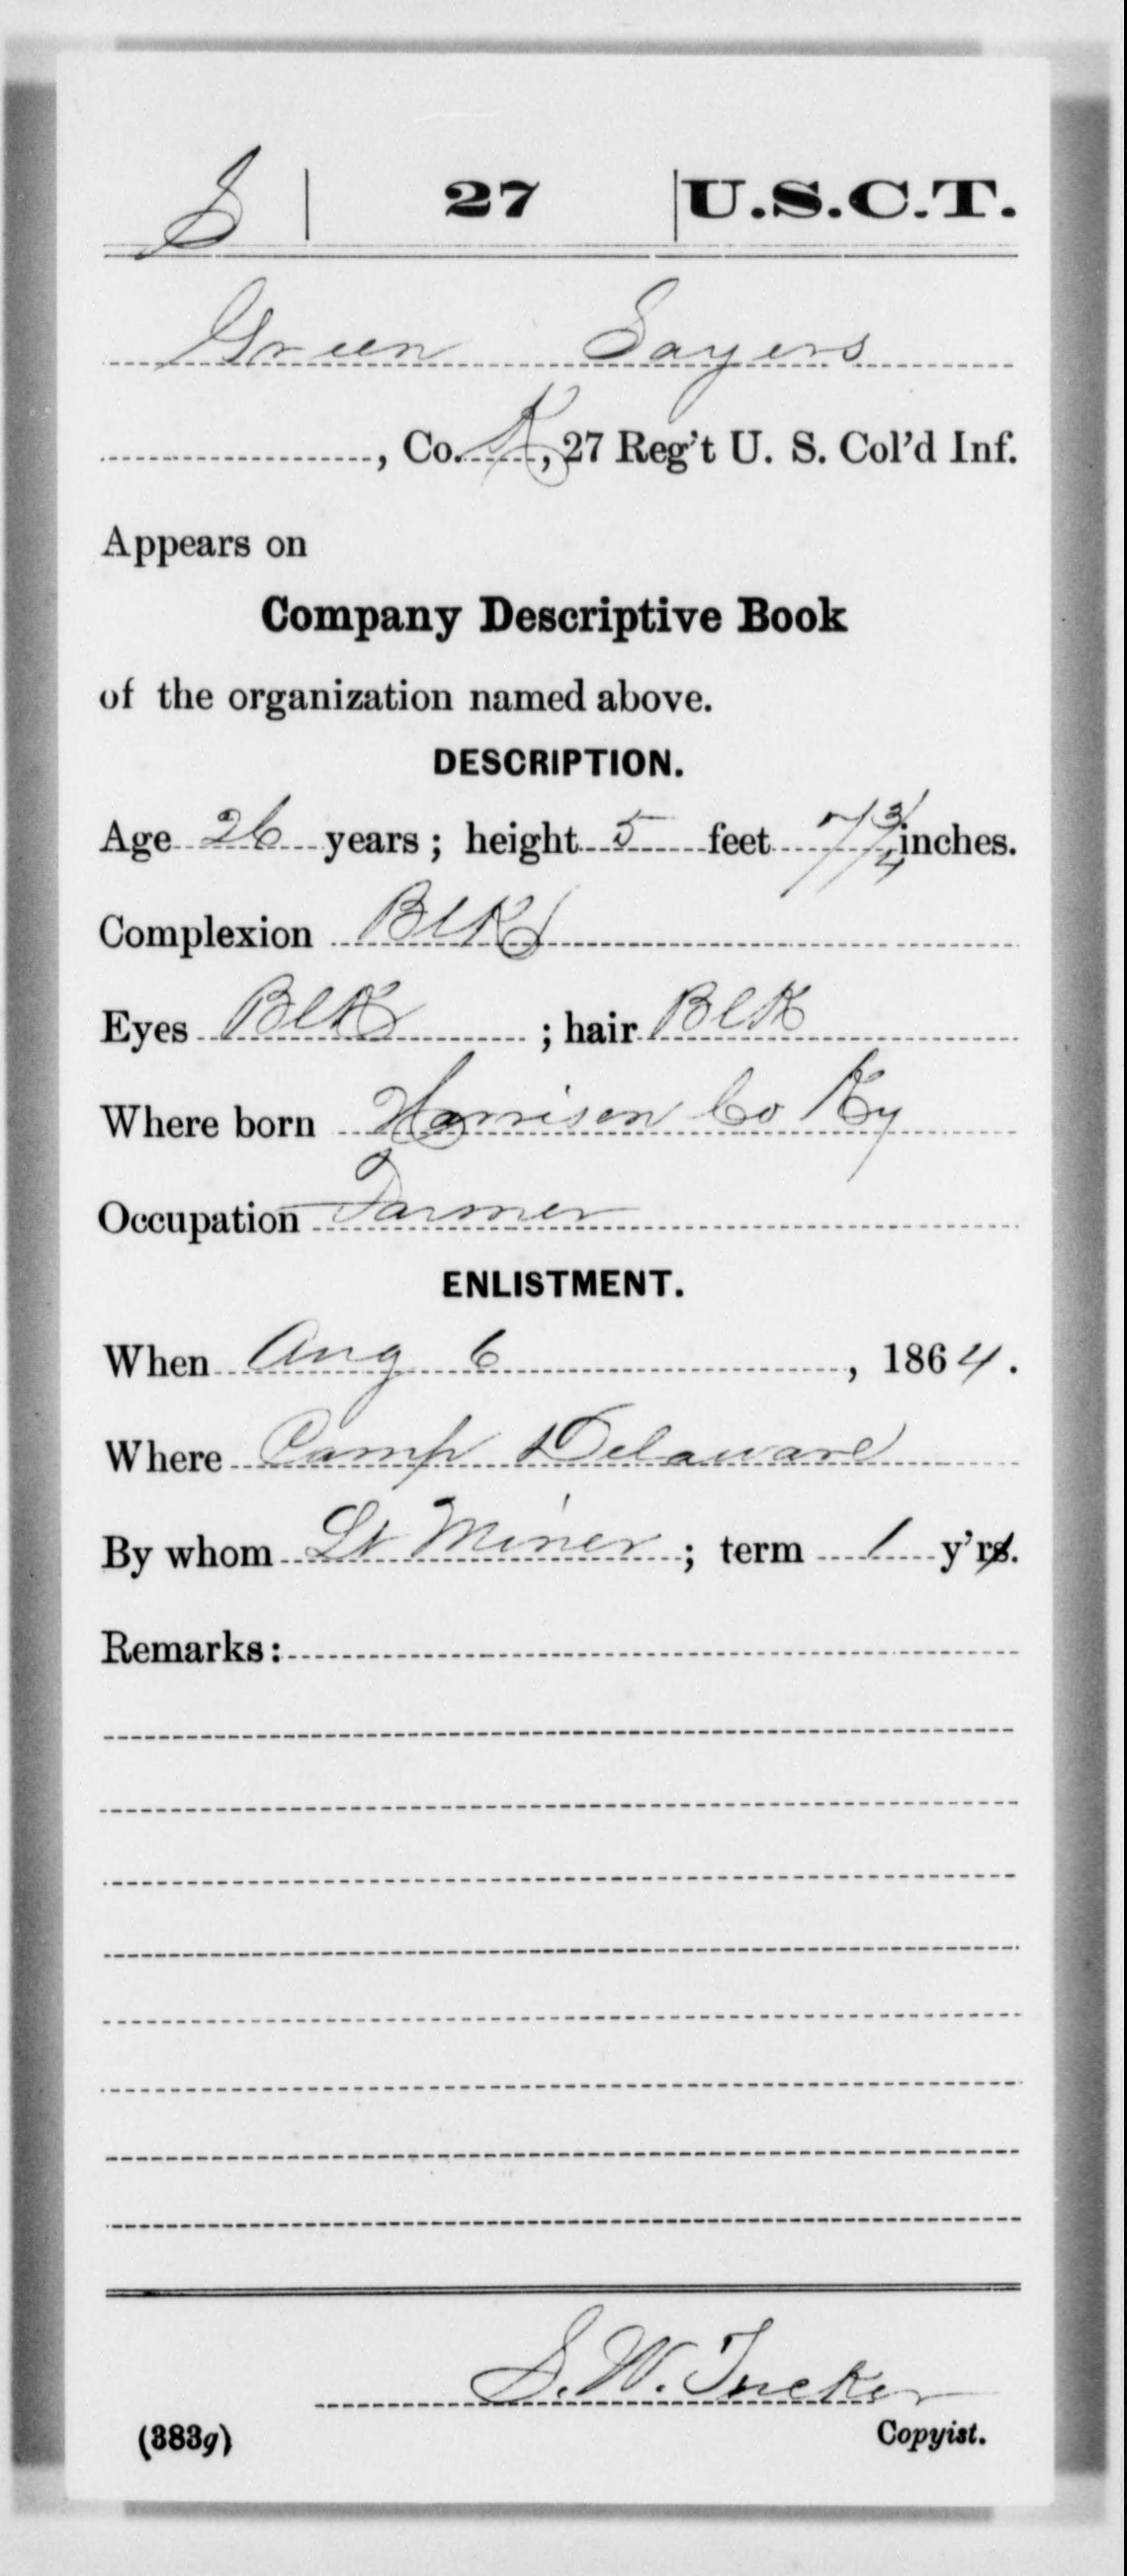 S | 27 | U.S.C.T.
Green Sayers
, Co. K, 27 Reg't U. S. Col'd Inf.
Appears on
Company Descriptive Book
of the organization named above.
DESCRIPTION.
Age 26 years; height 5 feet 7 3/4 inches.
Complexion Blk
Eyes Blk ; hair Blk
Where born Harrison Co Ky
Occupation Farmer
ENLISTMENT.
When Aug 6 , 1864.
Where Camp Delaware
By whom Lt Miner ; term 1 y'rs.
Remarks:
S. W. Tucker
(383g) Copyist.